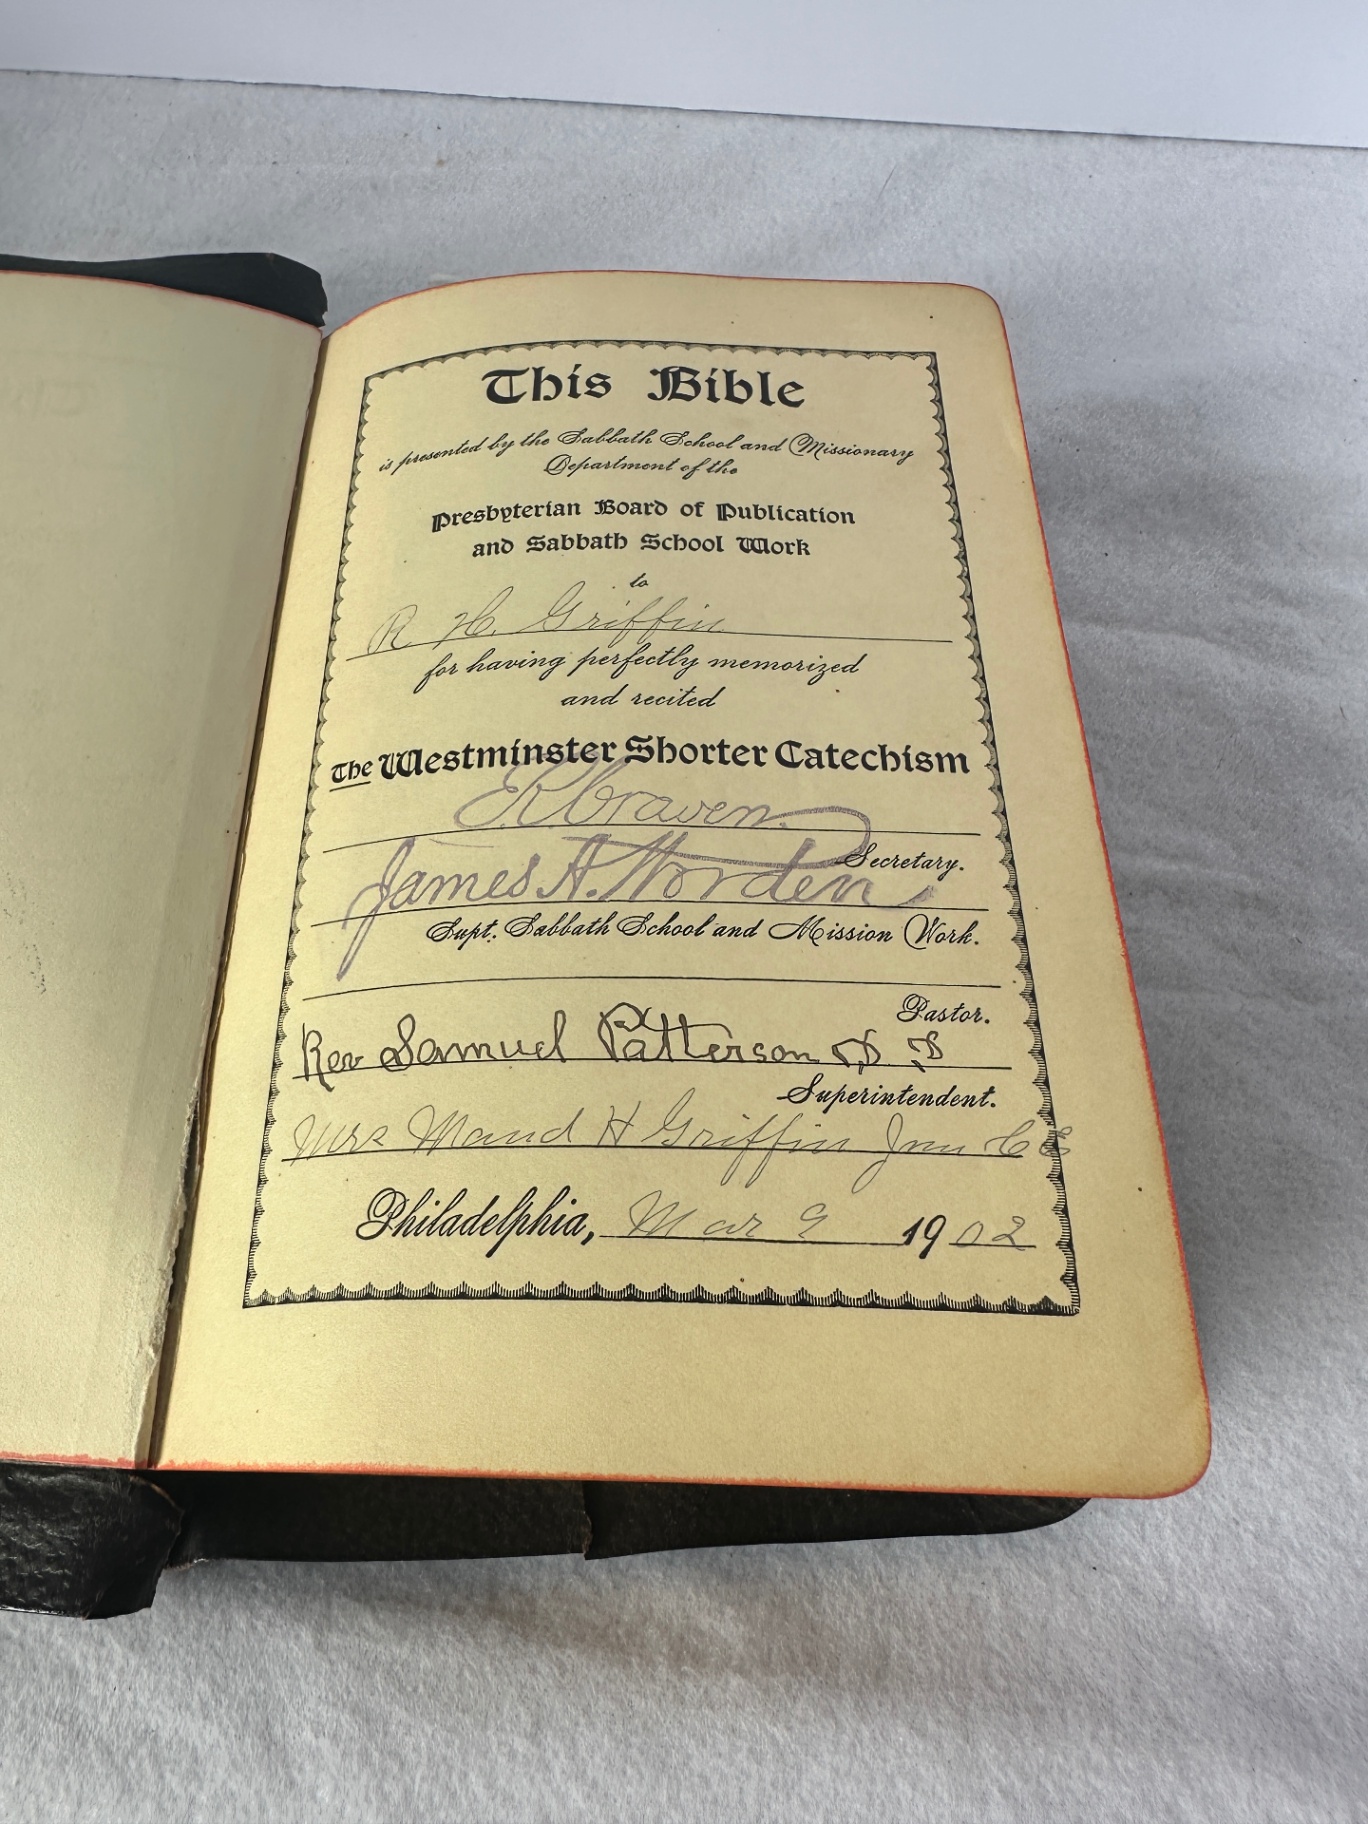 This Bible
is presented by the Sabbath School and Missionary
Department of the
Presbyterian Board of Publication
and Sabbath School Work
to
R H. Griffin
for having perfectly memorized
and recited
The Westminster Shorter Catechism
E R Craven.
Secretary.
James A. Worden
Supt. Sabbath School and Mission Work.
Pastor.
Rev Samuel Patterson D D
Superintendent.
Mrs Maud H Griffin Jun C E
Philadelphia, Mar 9 1902